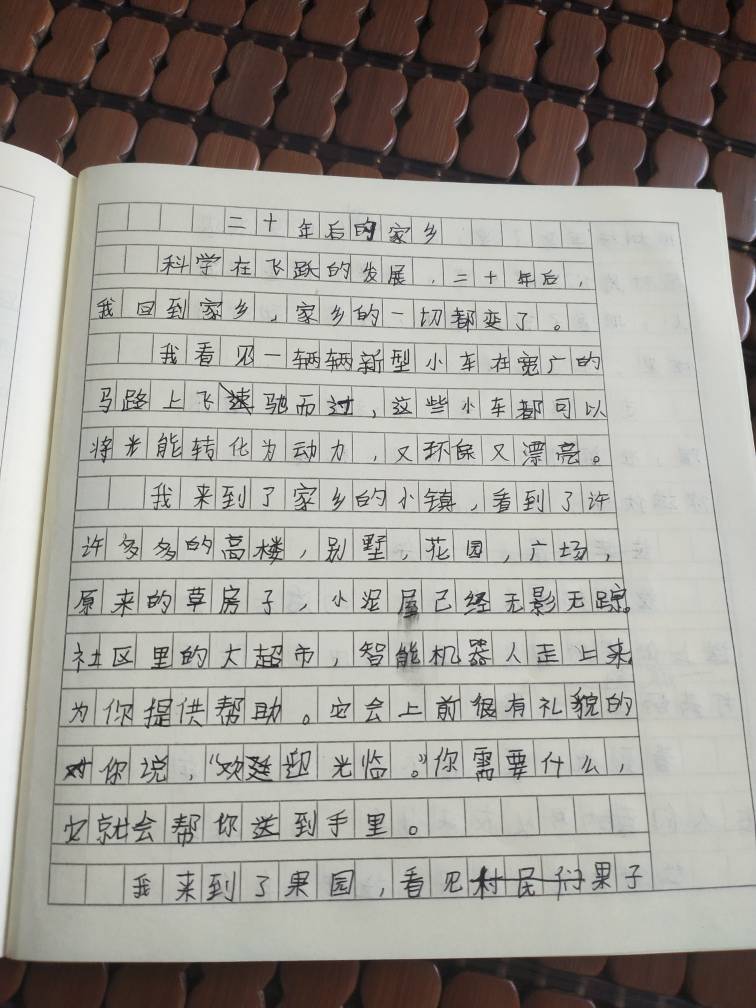 二十年后的家乡
科学在飞跃的发展，二十年后，
我回到家乡，家乡的一切都变了。
我看见一辆辆新型小车在宽广的
马路上飞驰而过，这些小车都可以
将光能转化为动力，又环保又漂亮。
我来到了家乡的小镇，看到了许
许多多的高楼，别墅，花园，广场，
原来的草房子，小泥屋已经无影无踪。
社区里的大超市，智能机器人走上来
为你提供帮助。它会上前很有礼貌的
对你说，“欢迎光临。”你需要什么，
它就会帮你送到手里。
我来到了果园，看见村民们果子